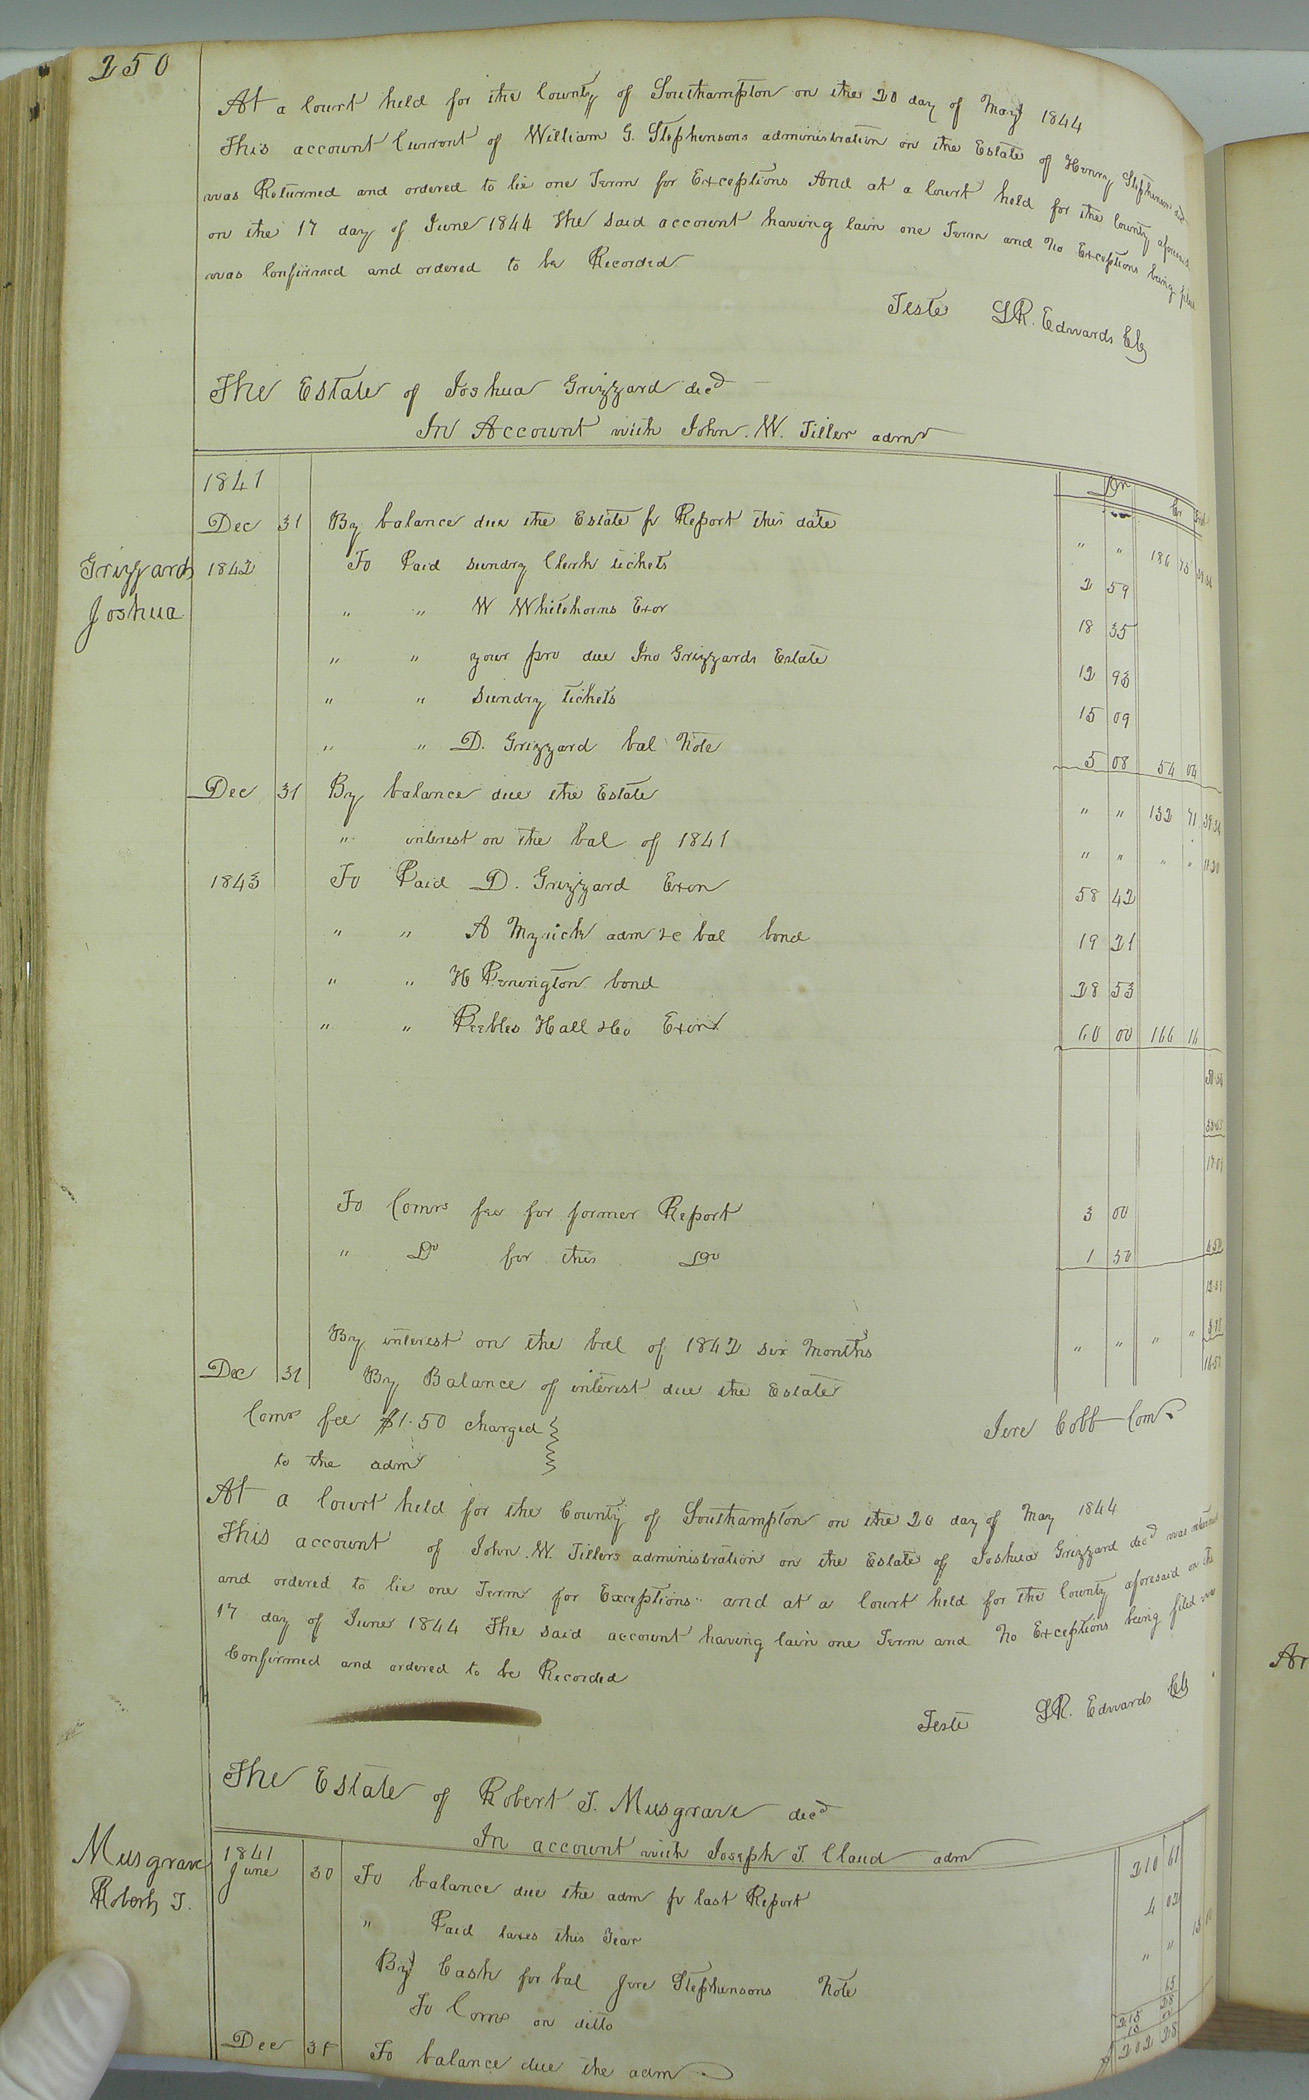 250
At a Court held for the County of Southampton on the 20 day of May 1844
This account Current of William G. Stephensons administration on the Estate of Henry Stephenson decd
was Returned and ordered to lie one Term for Exceptions And at a Court held for the County aforesaid
on the 17 day of June 1844 The said account having lain one Term and No Exceptions being filed
was Confirmed and ordered to be Recorded
Teste
Edwards Clk
The Estate of Joshua Grizzard decd
In Account with John. W. Tiller admr
1841 Dr Cr
Dec 31 By balance due the Estate pr Report this date " " 186 75
Grizzard
Joshua
1842 To Paid sundry Clerk tickets 2 59
" " W Whitehorns Exor 18 35
" " your pro due Jno Grizzards Estate 12 93
" " Sundry tickets 15 09
" " D. Grizzard bal Note 5 08 54 04
Dec 31 By balance due the Estate " " 132 71 39.34
" interest on the bal of 1841 " " " " 11.20
1843 To Paid D. Grizzard Exon 58 42
" " A Myrick adm &c bal bond 19 21
" " H Penington bond 28 53
" " Peebles Hall &Co Exon 60 00 166 16
33.45
17.09
To Comrs fee for former Report 3 00
" Do for this Do 1 50 4.50
12.59
By interest on the bal of 1842 six Months " " " "
Dec 31 By Balance of interest due the Estate
Comrs fee $1.50 charged
to the admr
Jere Cobb Comr
At a Court held for the County of Southampton on the 20 day of May 1844
This account of John. W. Tillers administration on the Estate of Joshua Grizzard decd was returned
and ordered to lie one Term for Exceptions and at a Court held for the County aforesaid on the
17 day of June 1844 The said account having lain one Term and No Exceptions being filed was
Confirmed and ordered to be Recorded
Teste
Edwards Clk
The Estate of Robert T. Musgrave decd
In account with Joseph T. Claud adm
Musgrave
Robert T.
1841
June 30 To balance due the adm pr last Report 210 61
" Paid taxes this Year 4 02
By Cash for bal Jere Stephensons Note " "
To Coms on ditto 65
215 28
Dec 31 To balance due the adm $ 202 28
Ar